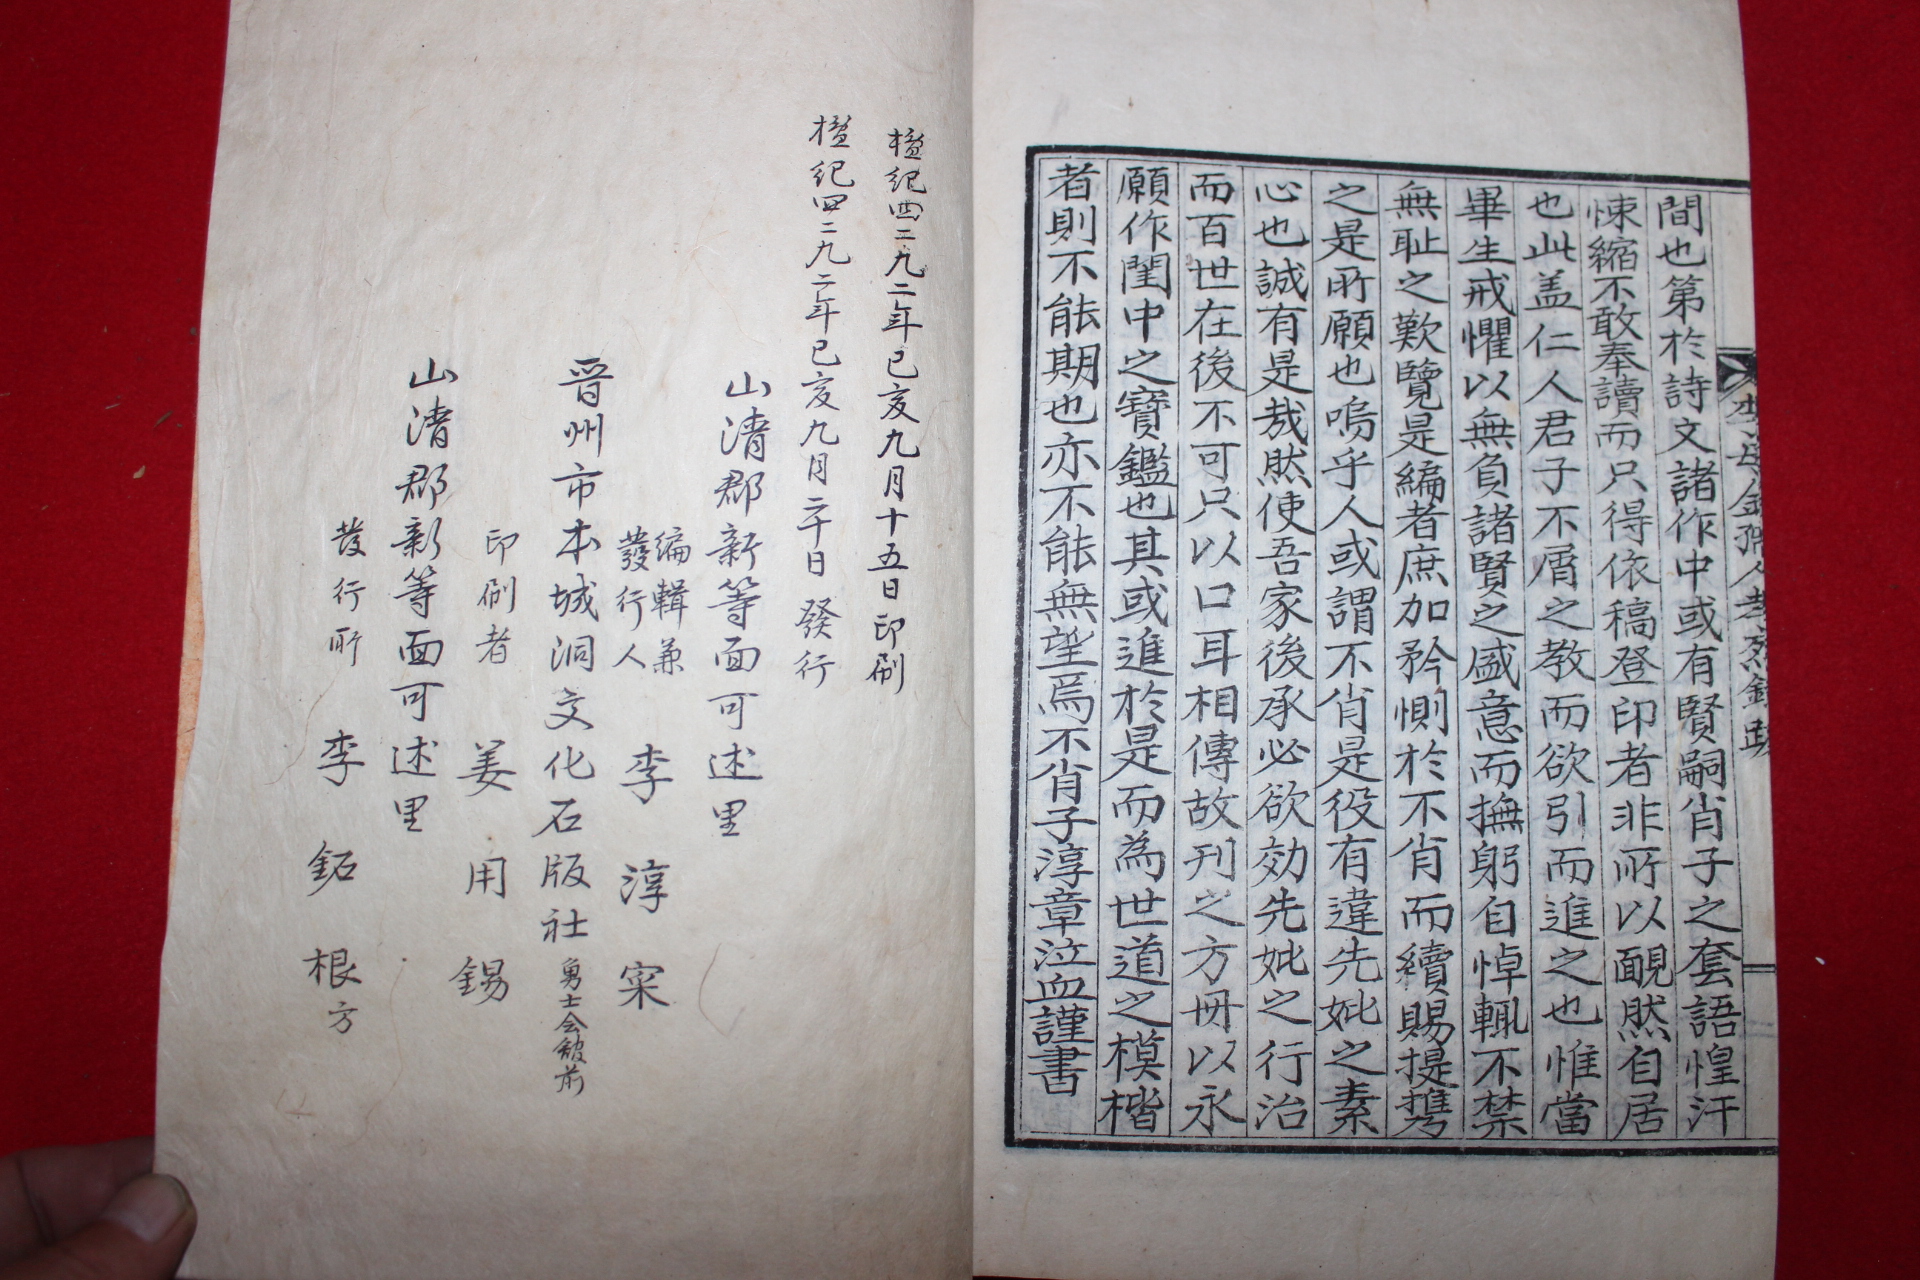 間也第於詩文諸作中或有賢嗣肖子之套語惶汗
悚縮不敢奉讀而只得依稿登印者非所以靦然自居
也此盖仁人君子不屑之教而欲引而進之也惟當
畢生戒懼以無負諸賢之盛意而撫躬自悼輒不禁
無耻之歎覽是編者庶加矜惻於不肖而續賜提携
之是所願也嗚乎人或謂不肖是役有違先妣之素
心也誠有是哉然使吾家後承必欲効先妣之行治
而百世在後不可只以口耳相傳故刊之方冊以永
願作閨中之寶鑑也其或進於是而為世道之模楷
者則不能期也亦不能無望焉不肖子淳章泣血謹書
檀紀四二九二年己亥九月十五日印刷
檀紀四二九二年己亥九月二十日發行
山清郡新等面可述里
編輯兼
發行人 李淳寀
晋州市本城洞文化石版社 勇士会舘前
印刷者 姜用錫
山清郡新等面可述里
發行所 李鉐根方